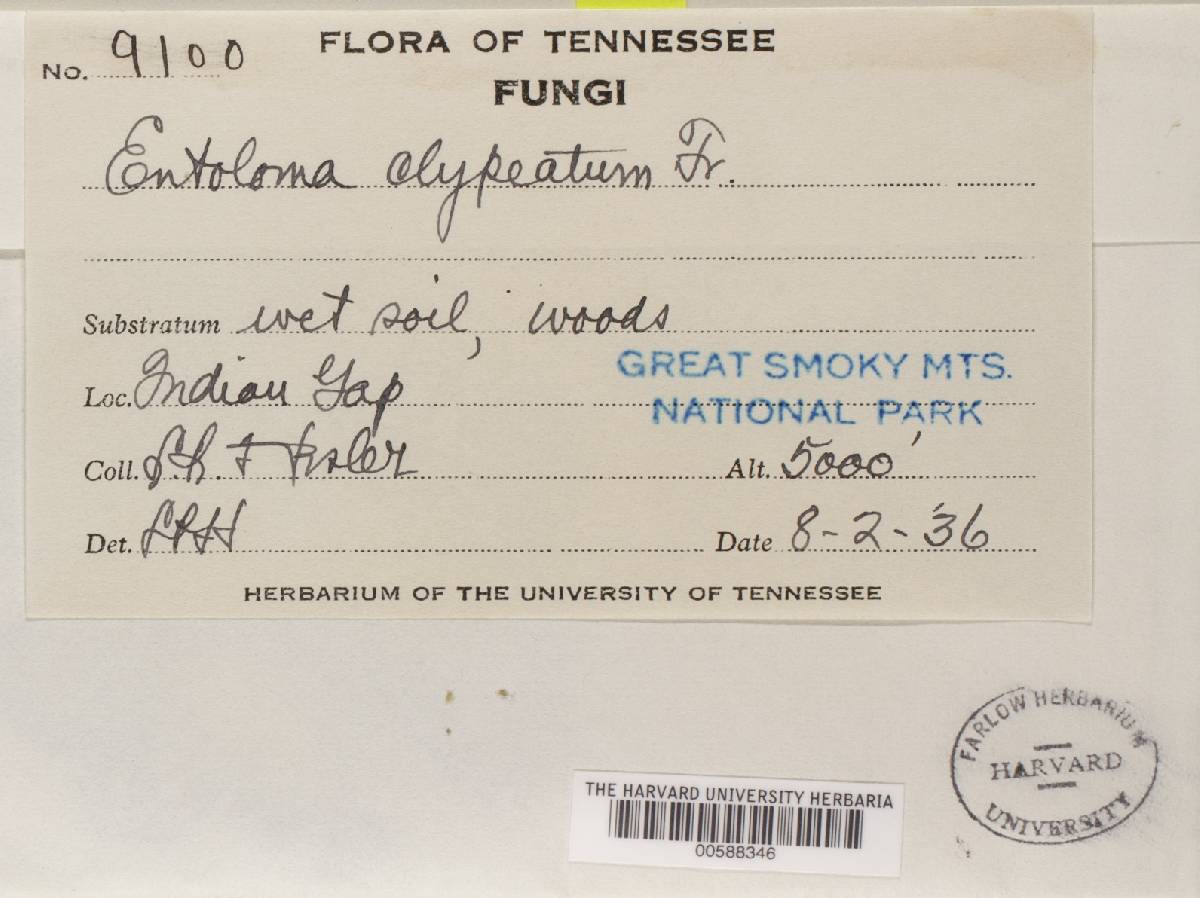 FLORA OF TENNESSEE
No. 9100
FUNGI
Entoloma clypeatum Fr.
Substratum wet soil, woods
GREAT SMOKY MTS.
Loc. Indian Gap
NATIONAL PARK
Coll. L.R. Hesler Alt. 5000'
Det. LRH Date 8-2-'36
HERBARIUM OF THE UNIVERSITY OF TENNESSEE
FARLOW HERBARIUM
HARVARD
UNIVERSITY
THE HARVARD UNIVERSITY HERBARIA
00588346